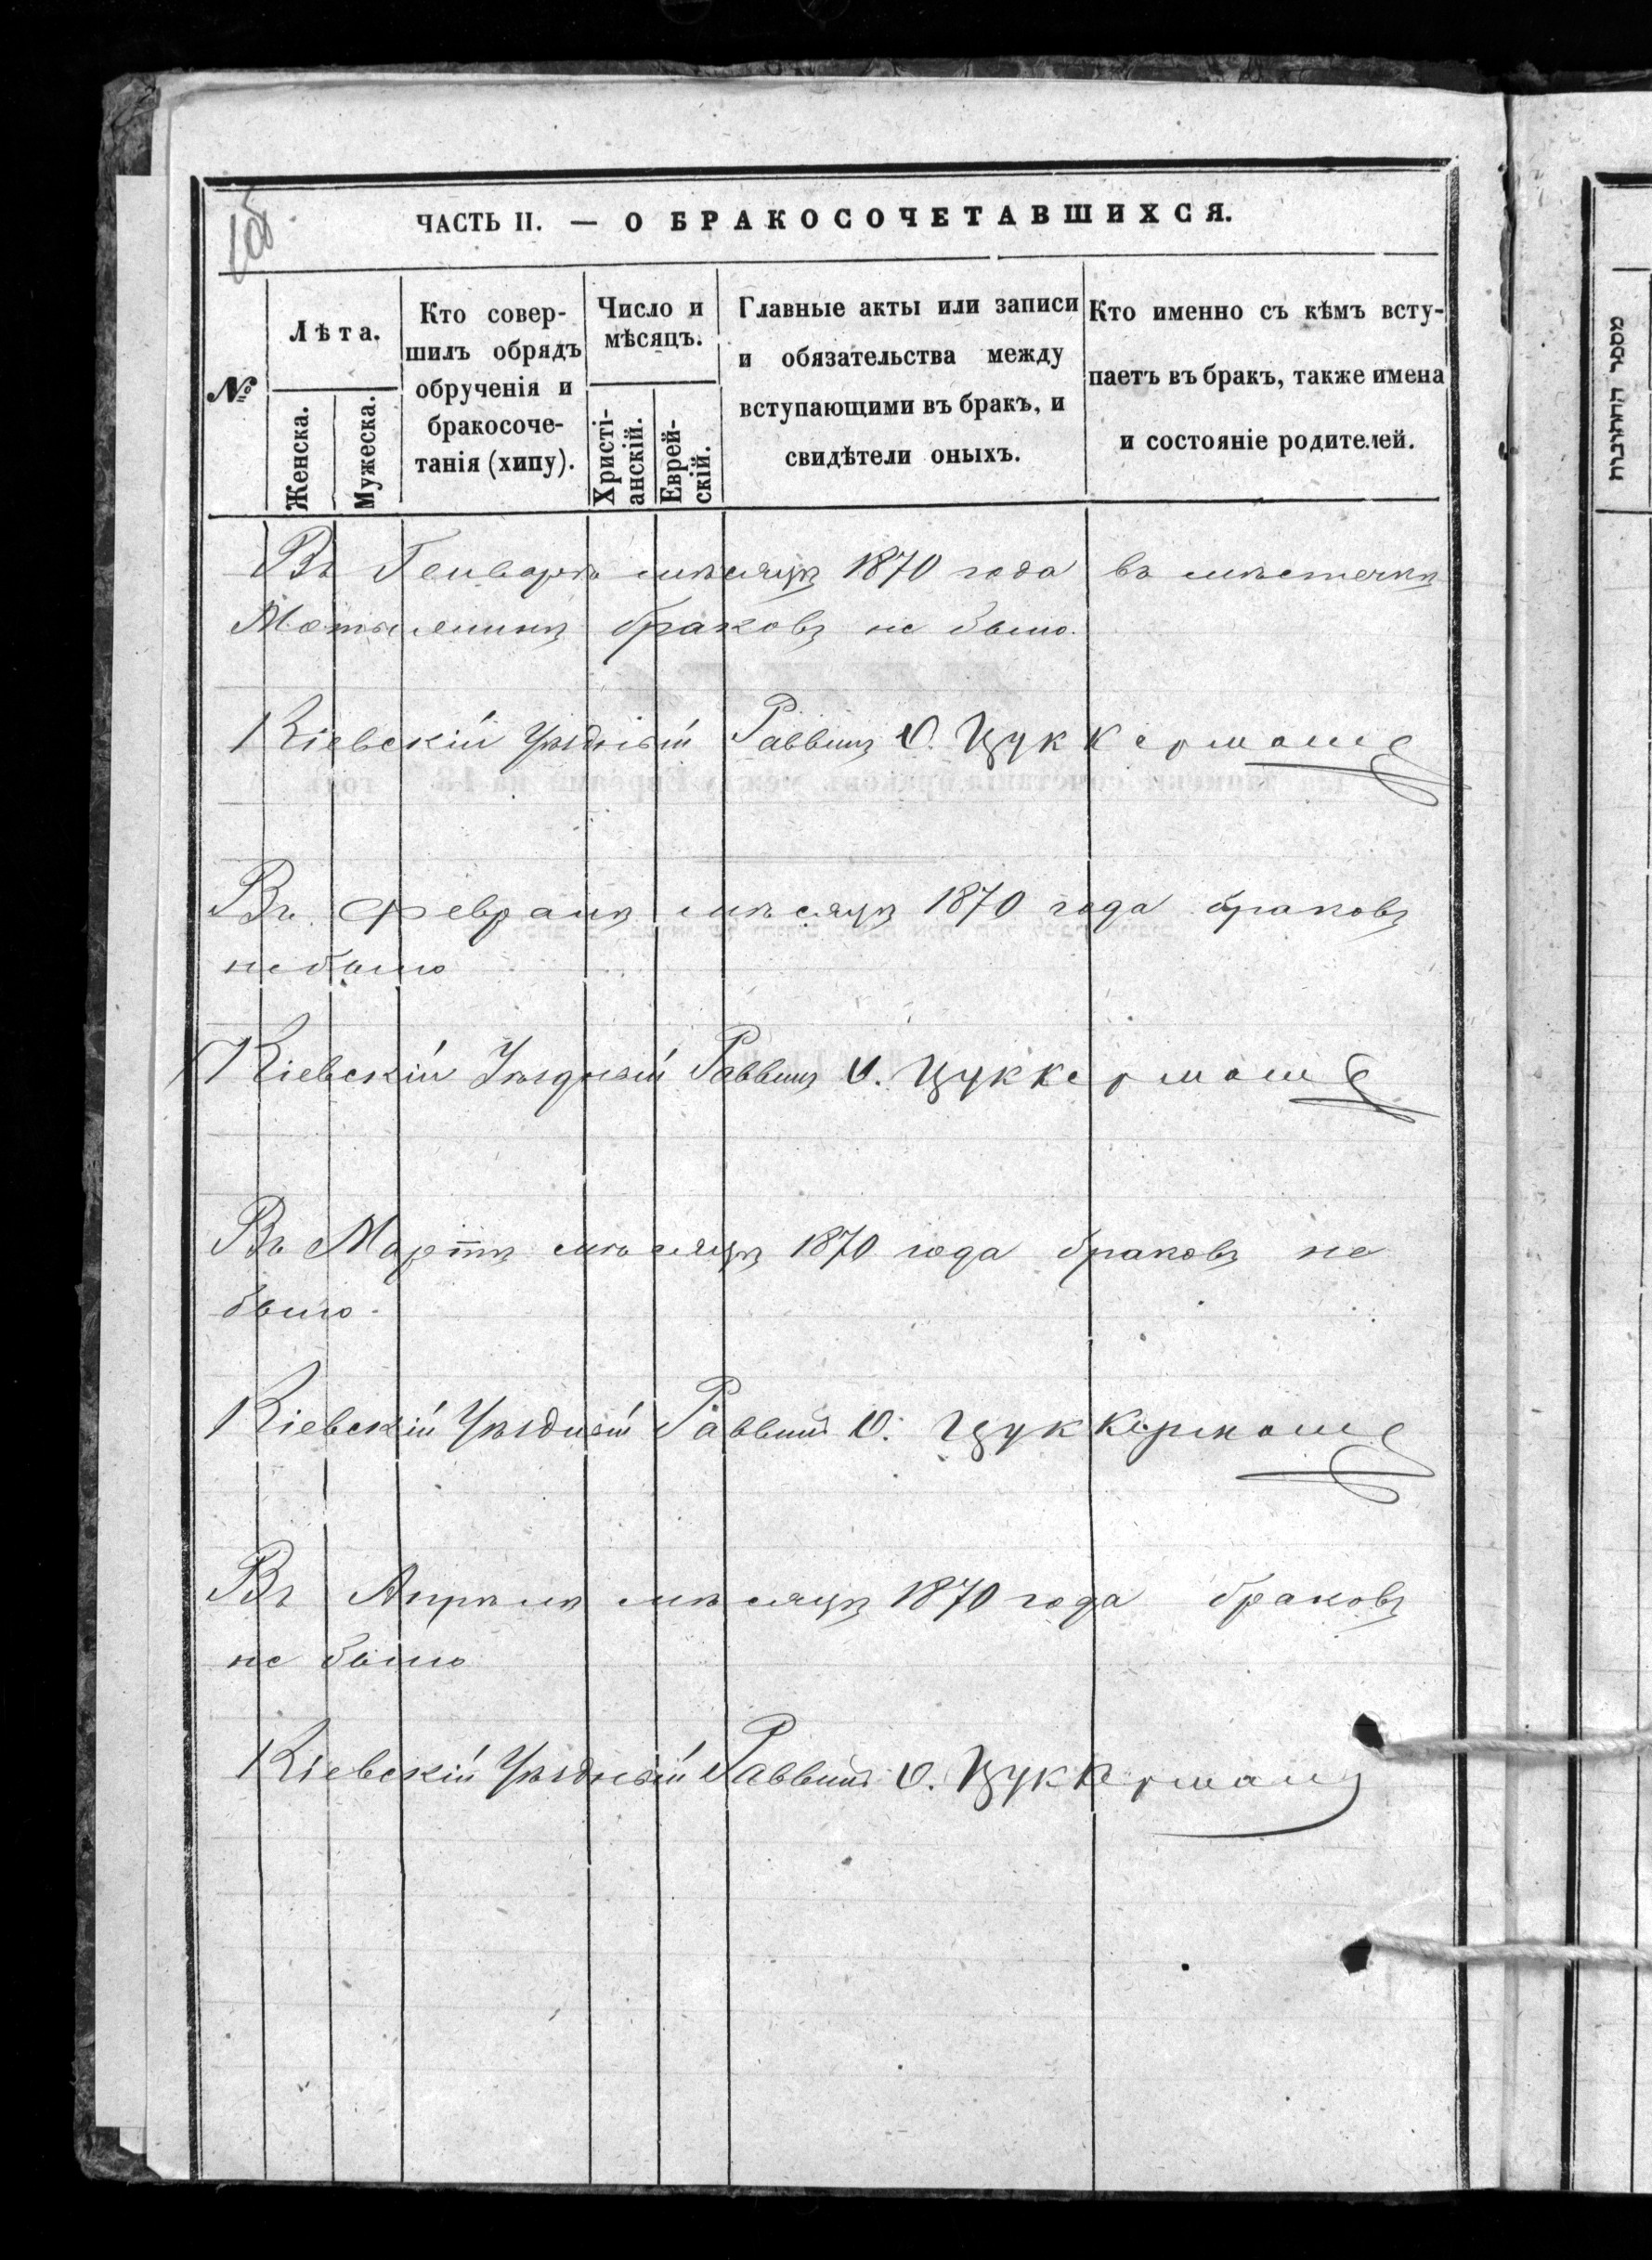 ЧАСТЬ II. — О БРАКОСОЧЕТАВШИХСЯ.
№
Лѣта.
Женска.
Мужеска.
Кто совер-
шилъ обрядъ
обрученія и
бракосоче-
танія (хипу).
Число и
мѣсяцъ.
Христі-
анскій.
Еврей-
скій.
Главные акты или записи
и обязательства между
вступающими въ бракъ, и
свидѣтели оныхъ.
Кто именно съ кѣмъ всту-
паетъ въ бракъ, также имена
и состояніе родителей.
Въ Генварѣ мѣсяцѣ 1870 года въ мѣстечкѣ
браковъ не было.
Кіевскій Уѣздный Раввинъ И. Цуккерманъ
Въ Февралѣ мѣсяцѣ 1870 года браковъ
не было
Кіевскій Уѣздный Раввинъ И. Цуккерманъ
Въ Мартѣ мѣсяцѣ 1870 года браковъ не
было.
Кіевскій Уѣздный Раввинъ И. Цуккерманъ
Въ Апрѣлѣ мѣсяцѣ 1870 года браковъ
не было
Кіевскій Уѣздный Раввинъ И. Цуккерманъ
מספר החתונות